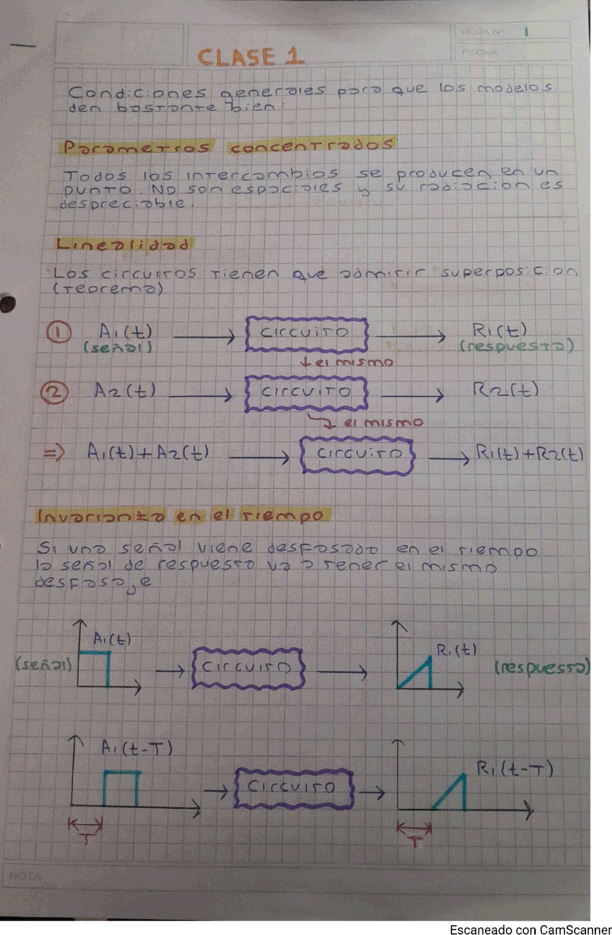 HOJA Nº 1
FECHA
CLASE 1
Condiciones generales para que los modelos
den bastante bien:
Parametros concentrados
Todos los intercambios se producen en un
punto. No son espaciales y su radiacion es
despreciable.
Linealidad
Los circuitos tienen que admitir superposicion
(teorema)
1 A1(t) circuito R1(t)
(señal) (respuesta)
el mismo
2 A2(t) circuito R2(t)
el mismo
⇒ A1(t)+A2(t) circuito R1(t)+R2(t)
Invarianza en el tiempo
Si una señal viene desfasada en el tiempo
la señal de respuesta va a tener el mismo
desfasaje
A1(t) R1(t)
(señal) circuito (respuesta)
A1(t-T) R1(t-T)
circuito
T T
NOTA
Escaneado con CamScanner